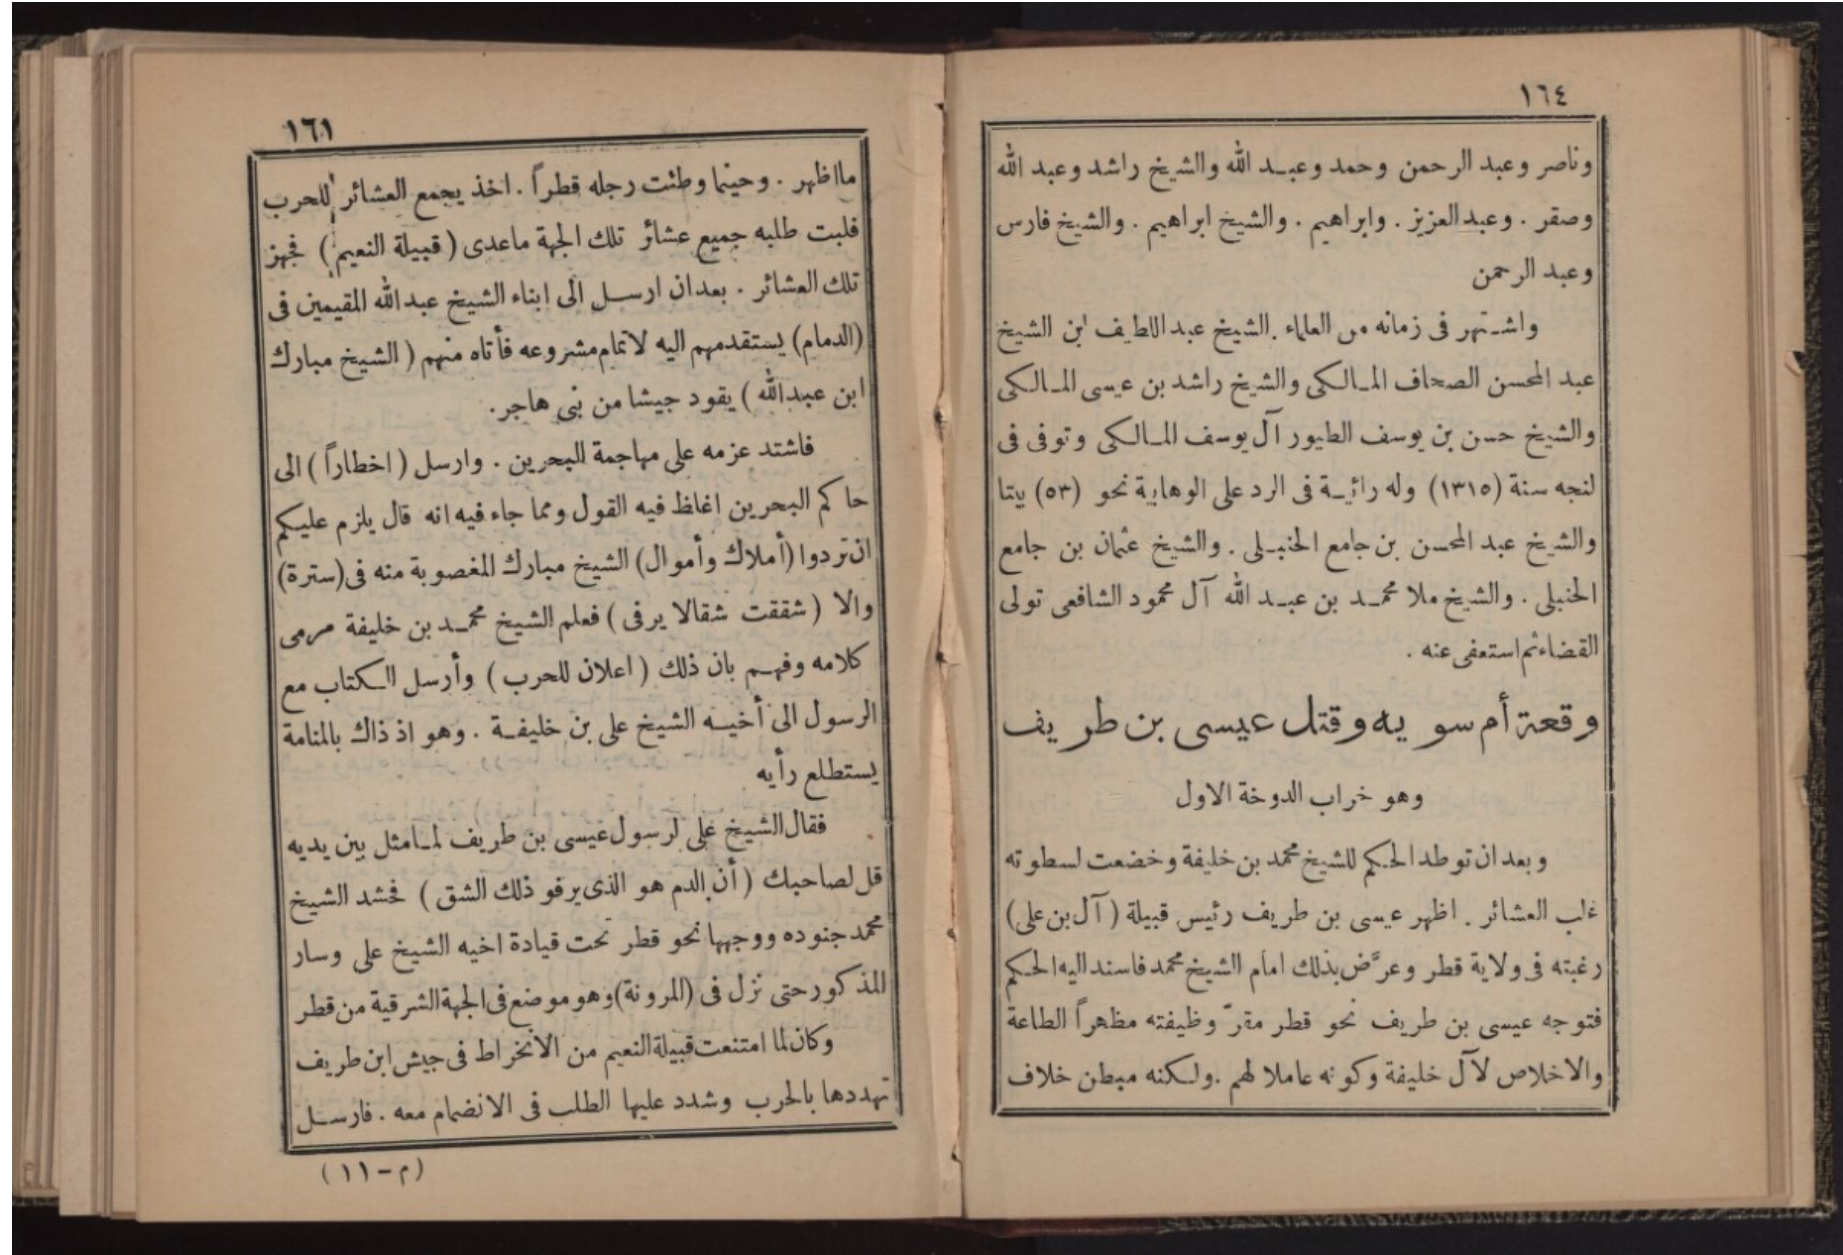 ١٦٤
وناصر وعبد الرحمن وحمد وعبد الله والشيخ راشد وعبد الله
وصقر . وعبد العزيز . وابراهيم . والشيخ ابراهيم . والشيخ فارس
وعبد الرحمن
واشتهر فى زمانه من العلماء . الشيخ عبد اللطيف ابن الشيخ
عبد المحسن الصحاف المالكى والشيخ راشد بن عيسى المالكى
والشيخ حسن بن يوسف الطيور آل يوسف المالكى وتوفى فى
لنجه سنة (١٣١٥) وله رائية فى الرد على الوهابية نحو (٥٣) بيتا
والشيخ عبد المحسن بن جامع الحنبلى . والشيخ عثمان بن جامع
الحنبلى . والشيخ ملا محمد بن عبد الله آل محمود الشافعى تولى
القضاء ثم استعفى عنه .
وقعة أم سويه وقتل عيسى بن طريف
وهو خراب الدوخة الاول
وبعد ان توطد الحكم للشيخ محمد بن خليفة وخضعت لسطوته
غلب العشائر . اظهر عيسى بن طريف رئيس قبيلة (آل بن على)
رغبته فى ولاية قطر وعرَّض بذلك امام الشيخ محمد فاسند اليه الحكم
فتوجه عيسى بن طريف نحو قطر مقرّ وظيفته مظهراً الطاعة
والاخلاص لآل خليفة وكونه عاملا لهم . ولكنه مبطن خلاف
١٦١
ما اظهر . وحينما وطئت رجله قطراً . اخذ يجمع العشائر للحرب
فلبت طلبه جميع عشائر تلك الجهة ماعدى (قبيلة النعيم) فجهز
تلك العشائر . بعد ان ارسل الى ابناء الشيخ عبد الله المقيمين فى
(الدمام) يستقدمهم اليه لاتمام مشروعه فأتاه منهم (الشيخ مبارك
ابن عبد الله) يقود جيشا من بنى هاجر .
فاشتد عزمه على مهاجمة البحرين . وارسل (اخطاراً) الى
حاكم البحرين اغلظ فيه القول ومما جاء فيه انه قال يلزم عليكم
ان تردوا (أملاك وأموال) الشيخ مبارك المغصوبة منه فى (سترة)
والا (شققت شقالا يرفى) فعلم الشيخ محمد بن خليفة مرمى
كلامه وفهم بان ذلك (اعلان للحرب) وأرسل الكتاب مع
الرسول الى أخيه الشيخ على بن خليفة . وهو اذ ذاك بالمنامة
يستطلع رأيه
فقال الشيخ على لرسول عيسى بن طريف لما مثل بين يديه
قل لصاحبك (أن الدم هو الذى يرفو ذلك الشق) فحشد الشيخ
محمد جنوده ووجهها نحو قطر تحت قيادة اخيه الشيخ على وسار
المذكور حتى نزل فى (المرونة) وهو موضع فى الجهة الشرقية من قطر
وكان لما امتنعت قبيلة النعيم من الانخراط فى جيش ابن طريف
تهددها بالحرب وشدد عليها الطلب فى الانضمام معه . فارسل
(م - ١١)